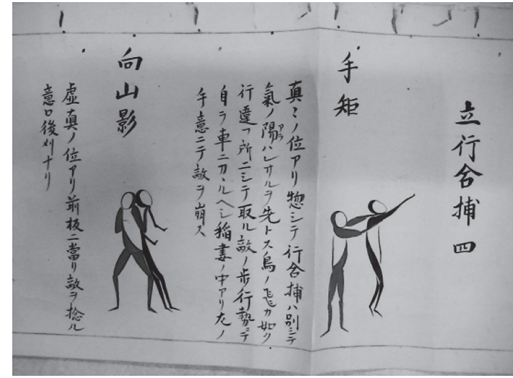 立行合捕四
手矩
真ミノ位アリ惣シテ行合捕ハ別シテ
氣ノ陽ハレサルヲ先トス鳥ノ飛カ如ク
行違フ所ニシテ取ル敵ノ歩行勢テ
自ラ車ニカヽルヘシ稲妻ノ中アリ左ノ
手意ニテ敵ヲ崩ス
向山影
虚真ノ位アリ前板ニ當リ敵ヲ捻ル
意口後刈ナリ